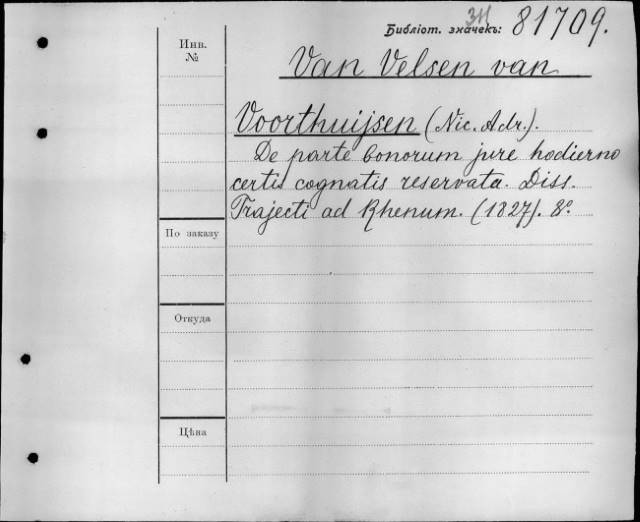 ЗН
Библіот. значекъ: 81709.
Инв.
№
Van Velsen van
Voorthuijsen (Nic. Adr.).
De parte bonorum jure hodierno
certis cognatis reservata. Diss.
Trajecti ad Rhenum. (1827). 8º.
По заказу
Откуда
Цѣна